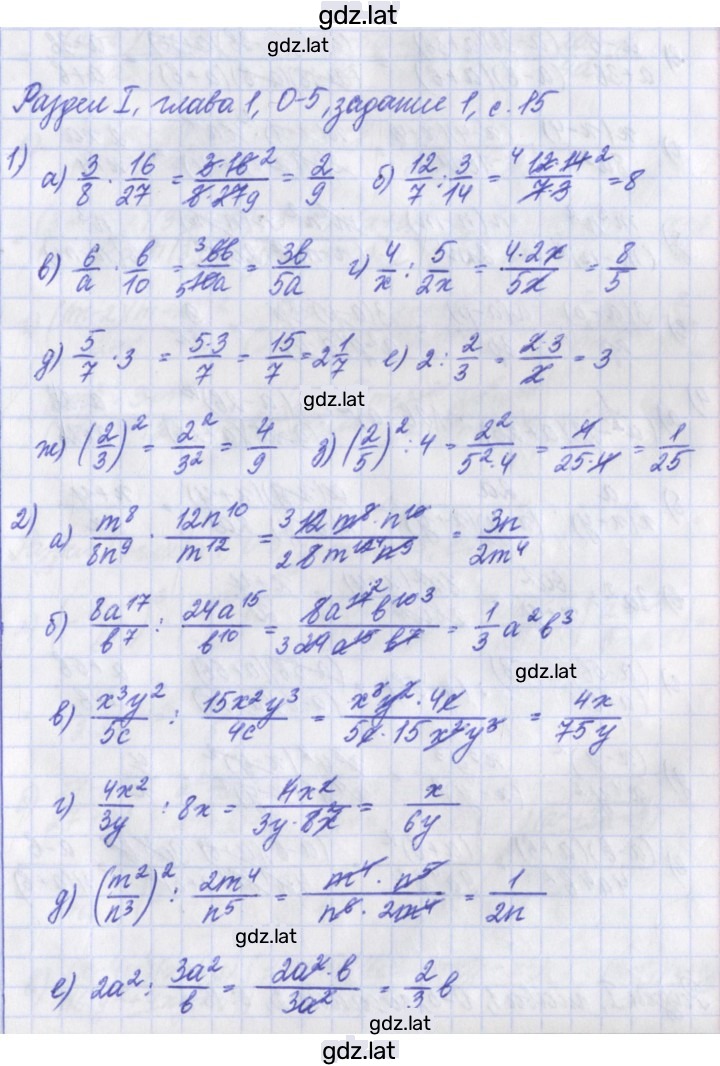 gdz.lat
gdz.lat
Раздел I, глава 1, О-5, задание 1, с. 15
1) а) 3/8 · 16/27 = 3·16 2/8·27 9 = 2/9 б) 12/7 : 3/14 = 4 12·14 2/7·3 = 8
в) 6/a · b/10 = 3 6b/5 10a = 3b/5a г) 4/x : 5/2x = 4·2x/5x = 8/5
д) 5/7 · 3 = 5·3/7 = 15/7 = 2 1/7 е) 2 : 2/3 = 2·3/2 = 3
gdz.lat
ж) (2/3)² = 2²/3² = 4/9 з) (2/5)² : 4 = 2²/5²·4 = 4/25·4 = 1/25
2) а) m⁸/8n⁹ · 12n¹⁰/m¹² = 3 12m⁸·n¹⁰/2 8m¹² ⁴n⁹ = 3n/2m⁴
б) 8a¹⁷/b⁷ : 24a¹⁵/b¹⁰ = 8a¹⁷ ²b¹⁰ ³/3 24a¹⁵b⁷ = 1/3 a²b³
gdz.lat
в) x³y²/5c : 15x²y³/4c = x³y²·4c/5c·15x²y³ = 4x/75y
г) 4x²/3y : 8x = 4x²/3y·8x = x/6y
д) (m²/n³)² : 2m⁴/n⁵ = m⁴·n⁵/n⁶·2m⁴ = 1/2n
gdz.lat
е) 2a² : 3a²/b = 2a²·b/3a² = 2/3 b
gdz.lat
gdz.lat